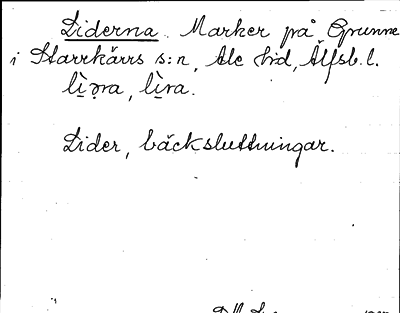 Liderna. Marker på Grunne
i Starrkärrs s:n, Ale hd, Älfsb. l.
lìṇra, lìra.
Lider, bäcksluttningar.